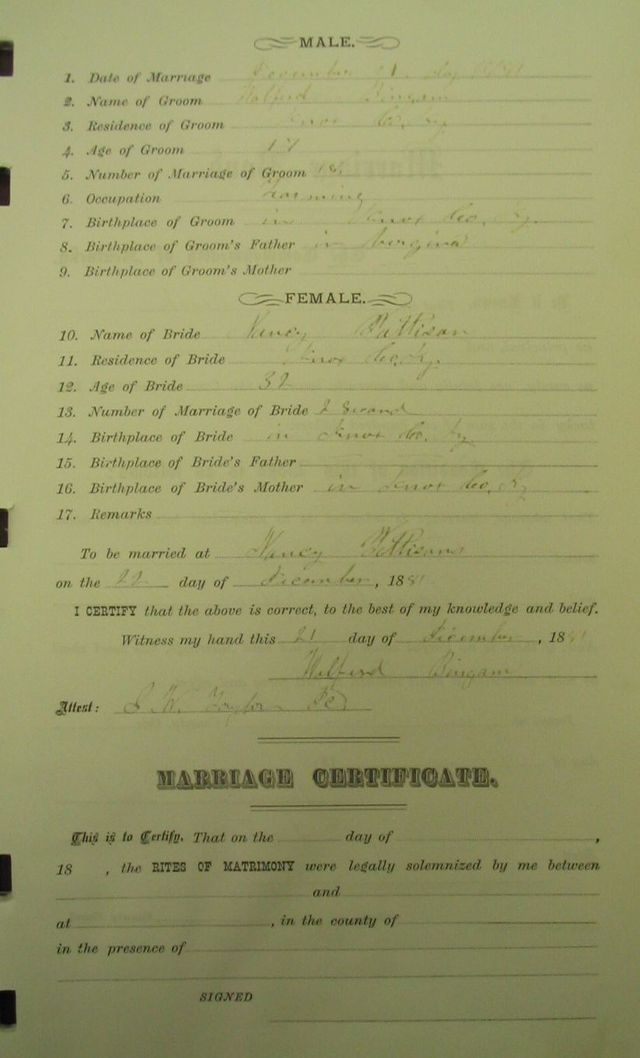 MALE.
1. Date of Marriage December 21 day
2. Name of Groom Welford Bingam
3. Residence of Groom Knox Co. Ky.
4. Age of Groom 17
5. Number of Marriage of Groom 1st
6. Occupation Farming
7. Birthplace of Groom in Knox Co, Ky.
8. Birthplace of Groom's Father in
9. Birthplace of Groom's Mother
FEMALE.
10. Name of Bride Nancy Pattison
11. Residence of Bride Knox Co, Ky.
12. Age of Bride 32
13. Number of Marriage of Bride 2
14. Birthplace of Bride in Knox Co. Ky
15. Birthplace of Bride's Father
16. Birthplace of Bride's Mother in Knox Co, Ky
17. Remarks
To be married at Nancy
on the 22 day of December, 188
I CERTIFY that the above is correct, to the best of my knowledge and belief.
Witness my hand this 21 day of December, 188
Welford Bingam
Attest:
MARRIAGE CERTIFICATE.
This is to Certify, That on the day of ,
18 , the RITES OF MATRIMONY were legally solemnized by me between
and
at , in the county of
in the presence of
SIGNED